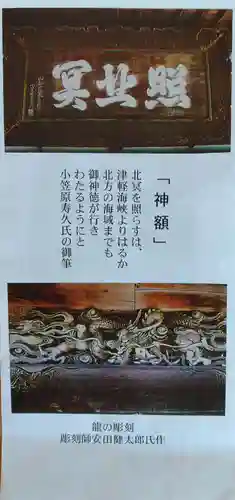 照北冥
「神額」
北冥を照らすは、
津軽海峡よりはるか
北方の海域までも
御神徳が行き
わたるようにと
小笠原寿久氏の御筆
龍の彫刻
彫刻師安田健太郎氏作